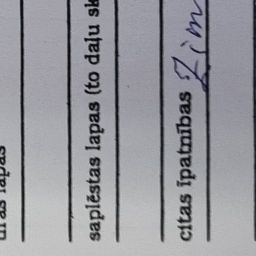 lapas
saplēstas lapas (to daļu sk
citas īpatnības Zīm